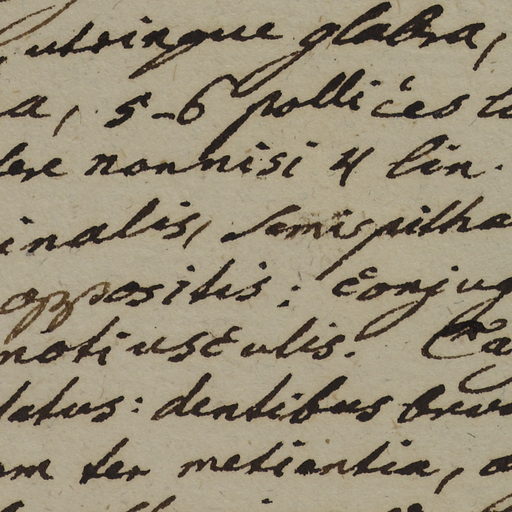 utrinque glabra,
a, 5-6 pollices l
ere nonnisi 4 lin.
inalis, semispitha
oppositis: conjug
motiusculis. Ca
latus: dentibus brev
om ter metientia, a